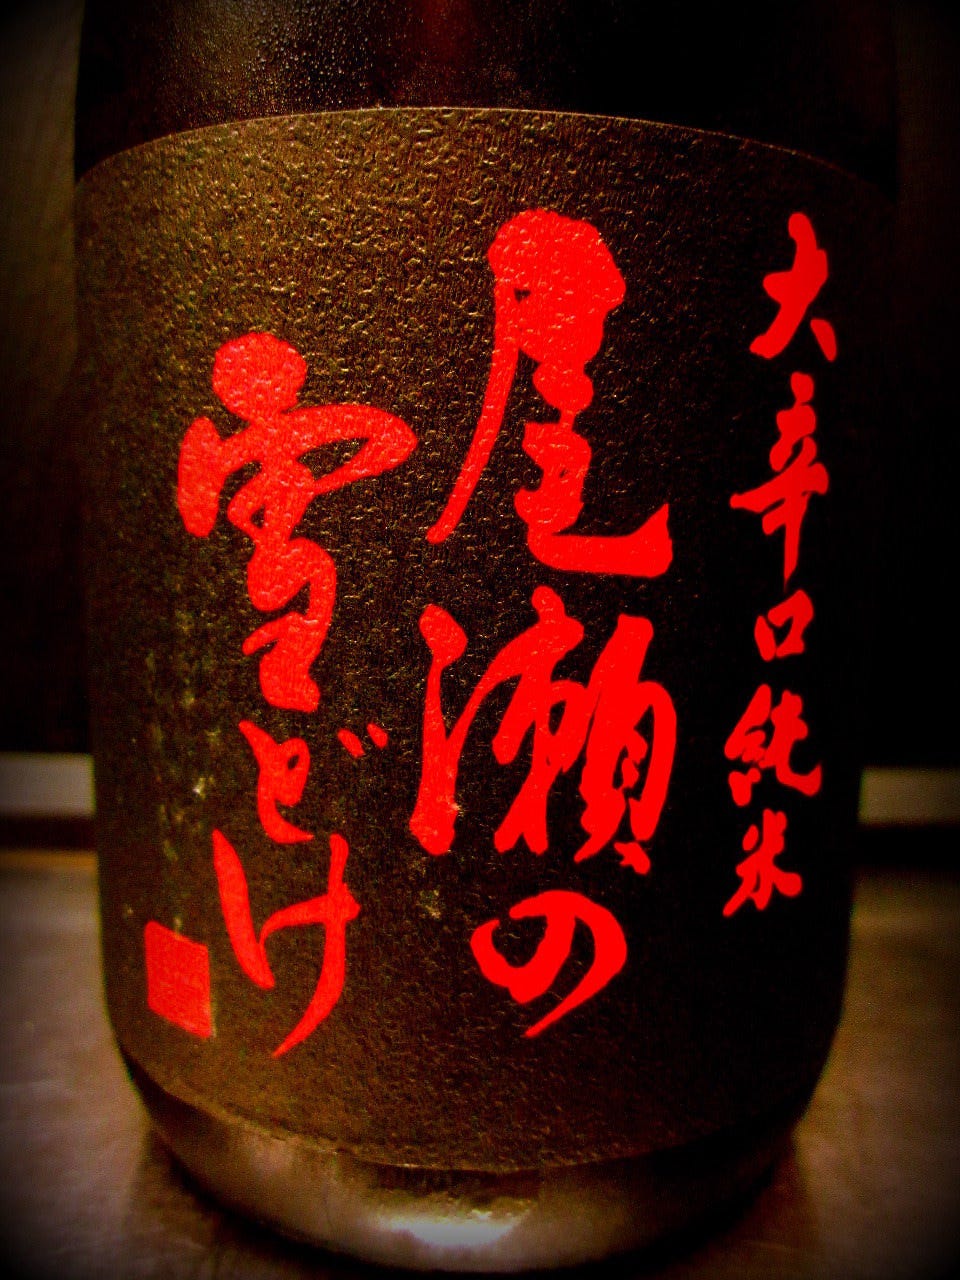 大辛口純米
尾瀬の
雪どけ